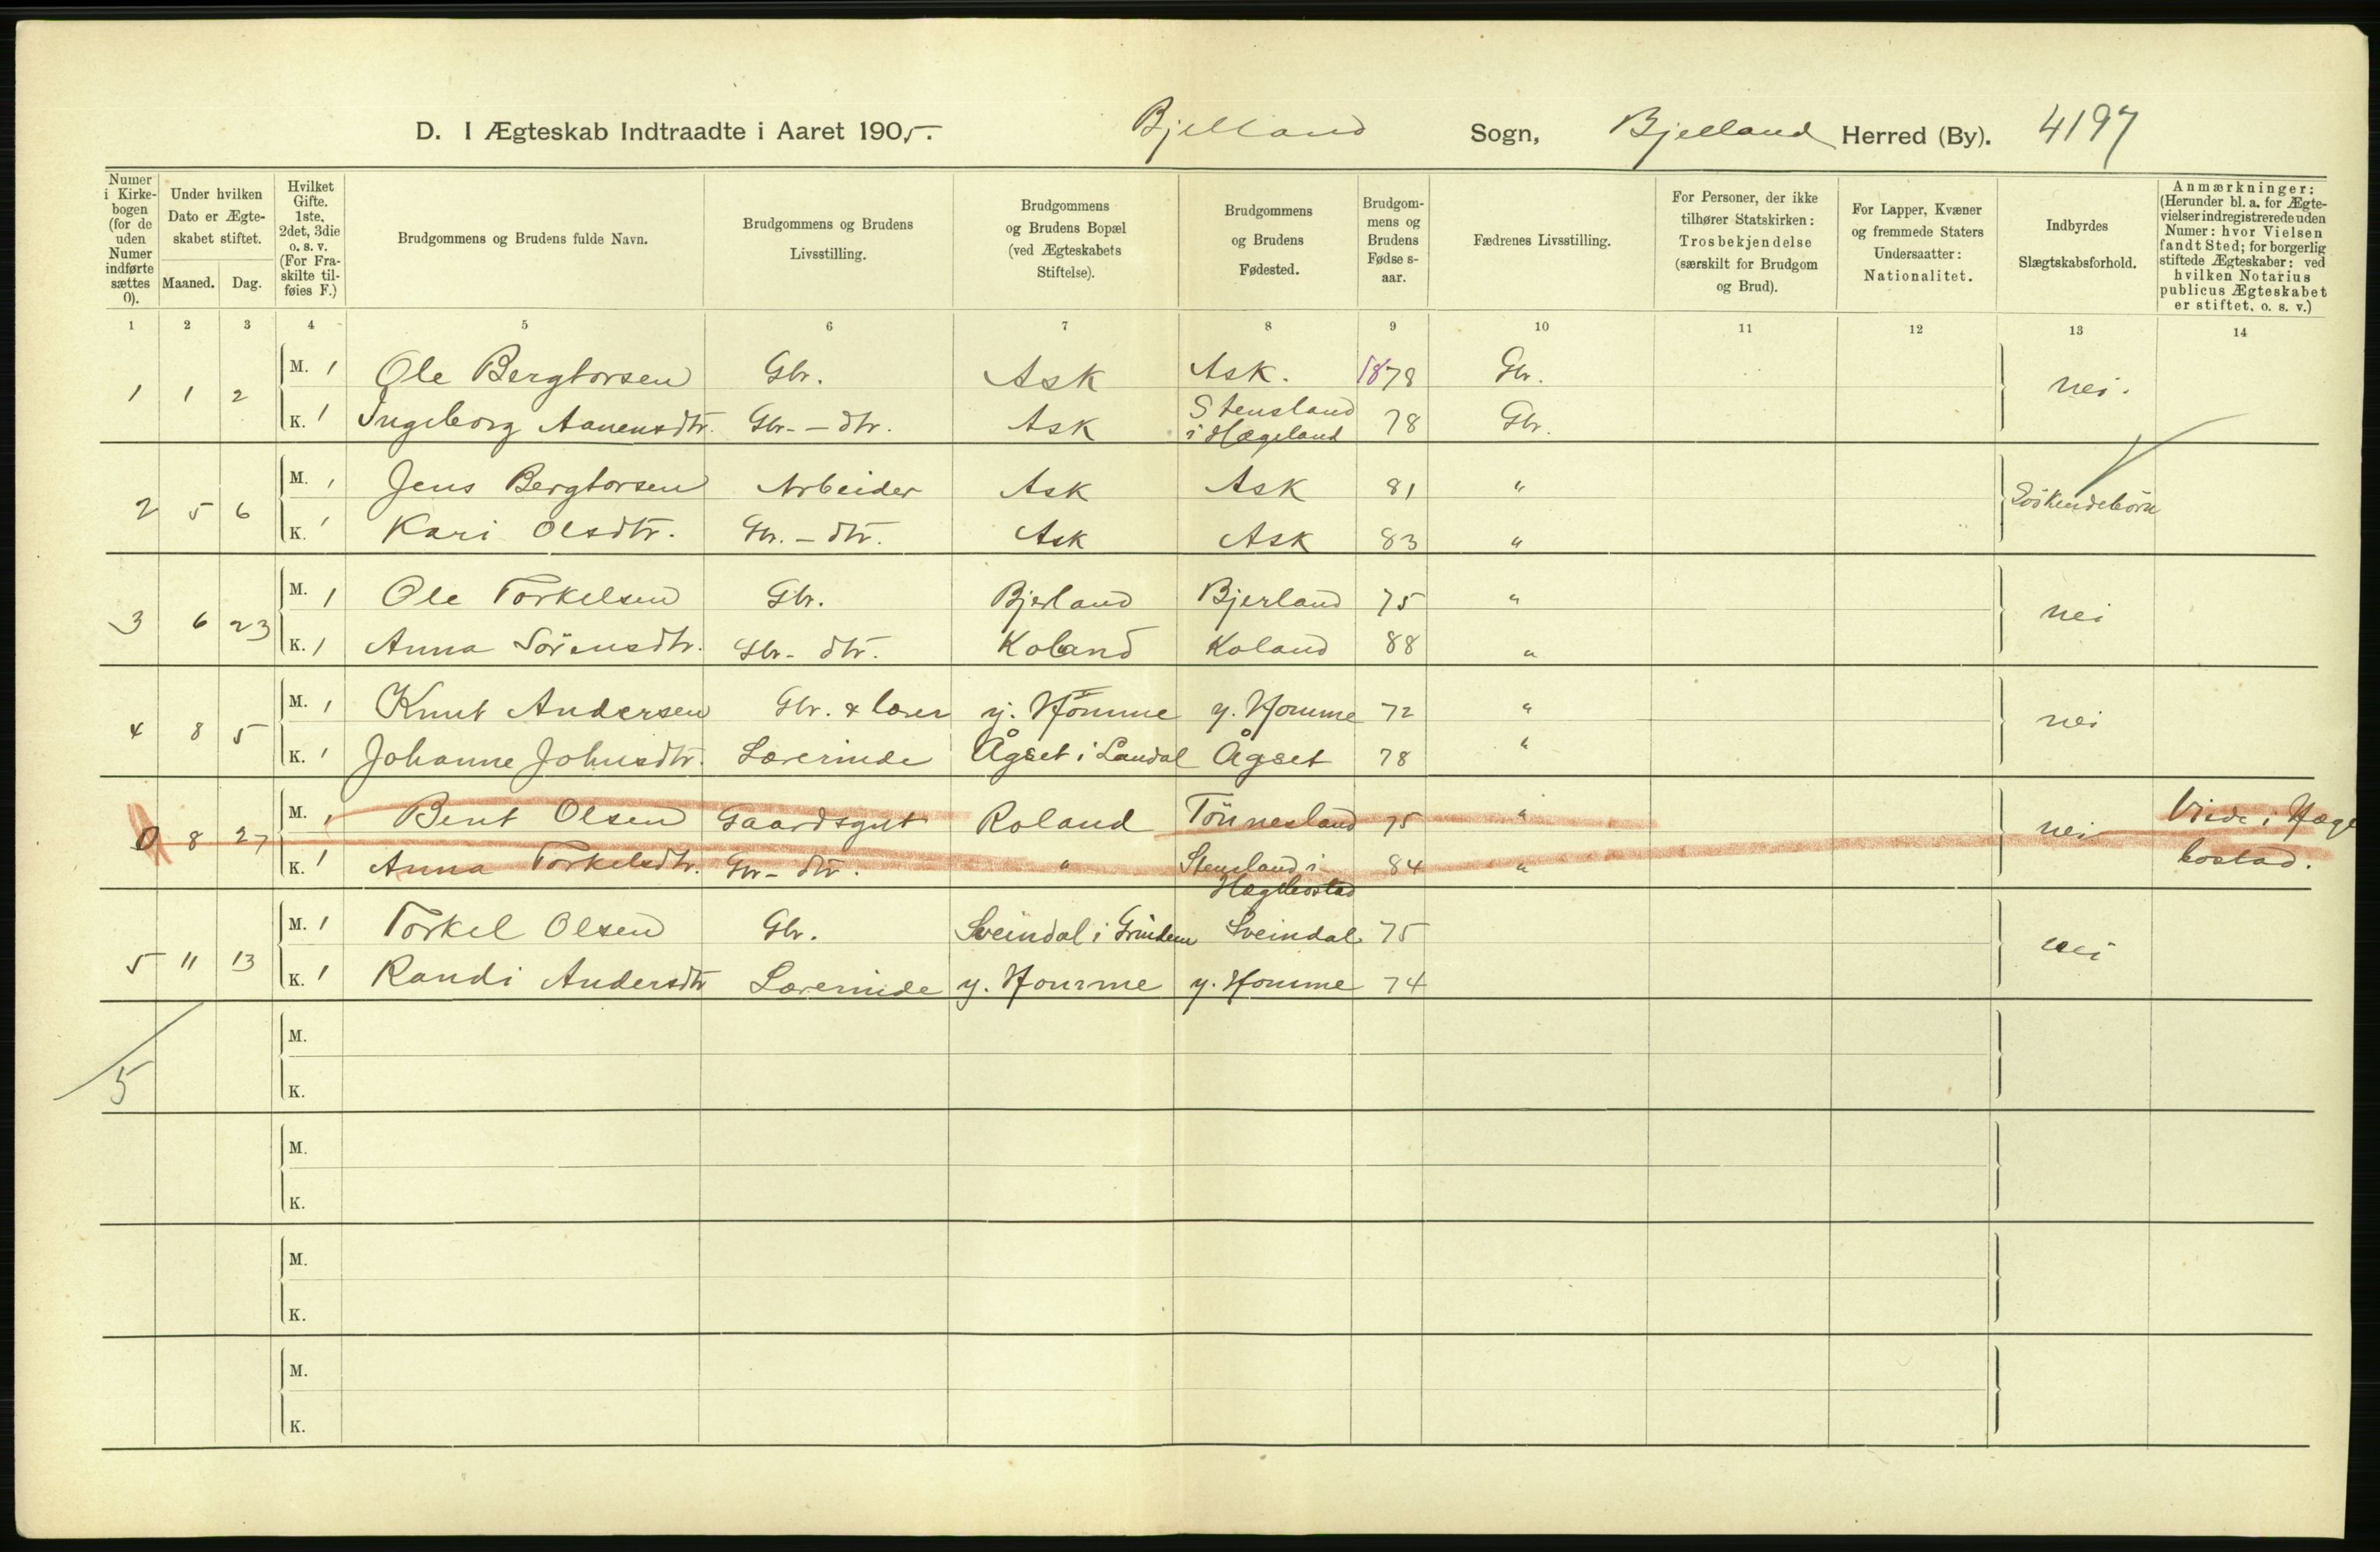 D. I Ægteskab Indtraadte i Aaret 1905. Bjelland Sogn, Bjelland Herred (By). 4197
Numer i Kirkebogen (for de uden Numer indførte sættes 0).
Under hvilken Dato er Ægteskabet stiftet.
Maaned. Dag.
Hvilket Gifte. 1ste, 2det, 3die o. s. v. (For Fraskilte tilføies F.)
Brudgommens og Brudens fulde Navn.
Brudgommens og Brudens Livsstilling.
Brudgommens og Brudens Bopæl (ved Ægteskabets Stiftelse).
Brudgommens og Brudens Fødested.
Brudgommens og Brudens Fødse s-aar.
Fædrenes Livsstilling.
For Personer, der ikke tilhører Statskirken: Trosbekjendelse (særskilt for Brudgom og Brud).
For Lapper, Kvæner og fremmede Staters Undersaatter: Nationalitet.
Indbyrdes Slægtskabsforhold.
Anmærkninger: (Herunder bl. a. for Ægtevielser indregistrerede uden Numer: hvor Vielsen fandt Sted; for borgerlig stiftede Ægteskaber: ved hvilken Notarius publicus Ægteskabet er stiftet, o. s. v.)
1 2 3 4 5 6 7 8 9 10 11 12 13 14
1 1 2 M. 1 Ole Bergtorsen Gbr. Ask Ask. 1878 Gbr. nei.
K. 1 Ingeborg Aanensdtr. Gbr. - dtr. Ask Stensland i Hægeland 78 Gbr.
2 5 6 M. 1 Jens Bergtorsen Arbeider Ask Ask 81 " Söskendebörn
K. 1 Kari Olsdtr. Gbr. - dtr. Ask Ask 83 "
3 6 23 M. 1 Ole Torkelsen Gbr. Bjerland Bjerland 75 " nei
K. 1 Anna Sörensdtr. Gbr - dtr. Koland Koland 88 "
4 8 5 M. 1 Knut Andersen Gbr. & lærer y. Homme y. Homme 72 " nei
K. 1 Johanne Johnsdtr. Lærerinde Ågset i Laudal Ågset 78 "
0 8 27 M. 1 Bent Olsen Gaardsgut Roland Tönnesland 75 " nei Viede i Hæge
K. 1 Anna Torkelsdtr. Gbr - dtr. " Stensland i Hægebostad 84 " bostad.
5 11 13 M. 1 Torkel Olsen Gbr. Sveindal i Grindem Sveindal 75 nei
K. 1 Randi Andersdtr Lærerinde y. Homme y. Homme 74
M.
5 K.
M.
K.
M.
K.
M.
K.